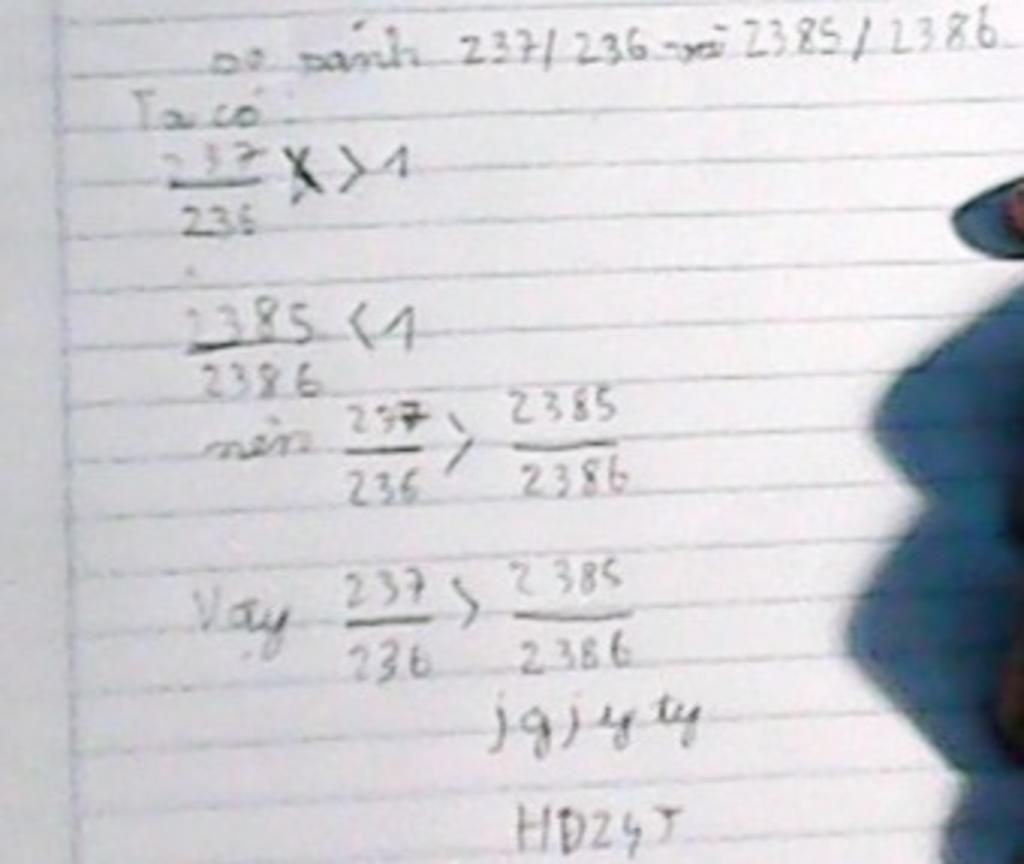 so sánh 237/236 với 2385/2386
Ta có:
237/236 > 1
2385/2386 < 1
nên 237/236 > 2385/2386
Vậy 237/236 > 2385/2386
jgjyty